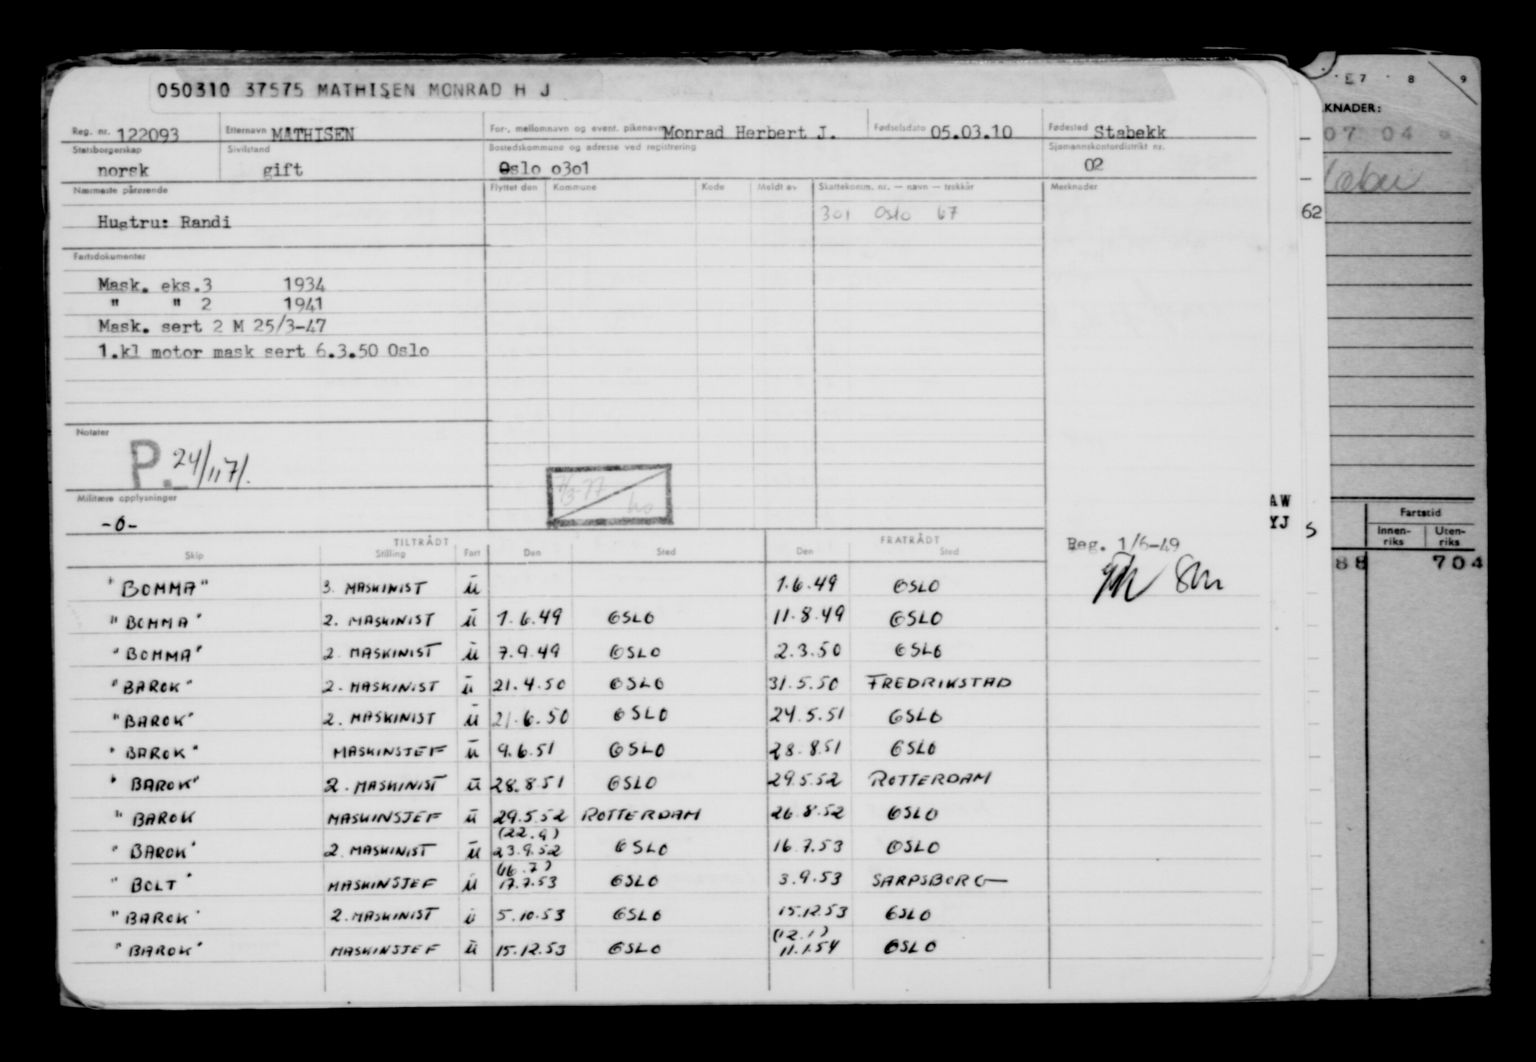 050310 37575 MATHISEN MONRAD H J
Reg. nr. 122093 Etternavn MATHISEN For-, mellomnavn og event. pikenavn Monrad Herbert J. Fødselsdato 05.03.10 Fødested Stabekk
Statsborgerskap Sivilstand Bostedskommune og adresse ved registrering Sjømannskontordistrikt nr.
norsk gift Oslo 0301 02
Nærmeste pårørende Flyttet den Kommune Kode Meldt av Skattekomm. nr. — navn — trekkår Merknader
301 Oslo 67
Hustru: Randi
Fartsdokumenter
Mask. eks.3 1934
" " 2 1941
Mask. sert 2 M 25/3-47
1.kl motor mask sert 6.3.50 Oslo
Notater
P. 24/11 71.
Militære opplysninger
-0-
TILTRÅDT FRATRÅDT
Skip Stilling Fart Den Sted Den Sted
Reg. 1/6-49
"BOMMA" 3. MASKINIST ū 1.6.49 OSLO
"BOMMA" 2. MASKINIST ū 1.6.49 OSLO 11.8.49 OSLO
"BOMMA" 2. MASKINIST ū 7.9.49 OSLO 2.3.50 OSLO
"BAROK" 2. MASKINIST ū 21.4.50 OSLO 31.5.50 FREDRIKSTAD
"BAROK" 2. MASKINIST ū 21.6.50 OSLO 24.5.51 OSLO
"BAROK" MASKINSJEF ū 9.6.51 OSLO 28.8.51 OSLO
"BAROK" 2. MASKINIST ū 28.8.51 OSLO 29.5.52 ROTTERDAM
"BAROK MASKINSJEF ū 29.5.52 ROTTERDAM 26.8.52 OSLO
(22.9)
"BAROK" 2. MASKINIST ū 23.9.52 OSLO 16.7.53 OSLO
(16.7)
"BOLT" MASKINSJEF ū 17.7.53 OSLO 3.9.53 SARPSBORG
"BAROK" 2. MASKINIST ū 5.10.53 OSLO 15.12.53 OSLO
(12.1)
"BAROK" MASKINSJEF ū 15.12.53 OSLO 11.1.54 OSLO
62
AW
YJ
S
7 8 9
KNADER:
07 04
Fartstid
Innen-
riks
Uten-
riks
88 704